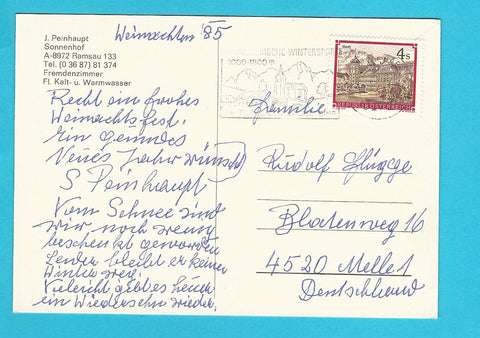 J. Peinhaupt
Sonnenhof
A-8972 Ramsau 133
Tel. (0 36 87) 81 374
Fremdenzimmer
Fl. Kalt- u. Warmwasser
Weinachten 85
Recht ein frohes
Weinachtsfest.
Ein gesundes
Neues Jahr wünscht
S Peinhaupt
Vom Schnee sind
wir noch wenig
beschenkt geworden
Leider bleibt er keinen
Winter
Vieleicht gibt es heuer
ein Wiedersehn wieder.
WINTERSPORT
1000-1800 m
4 S
REPUBLIK ÖSTERREICH
Familie
Rudolf Flügge
Blotenweg 16
4520 Melle 1
Deutschland